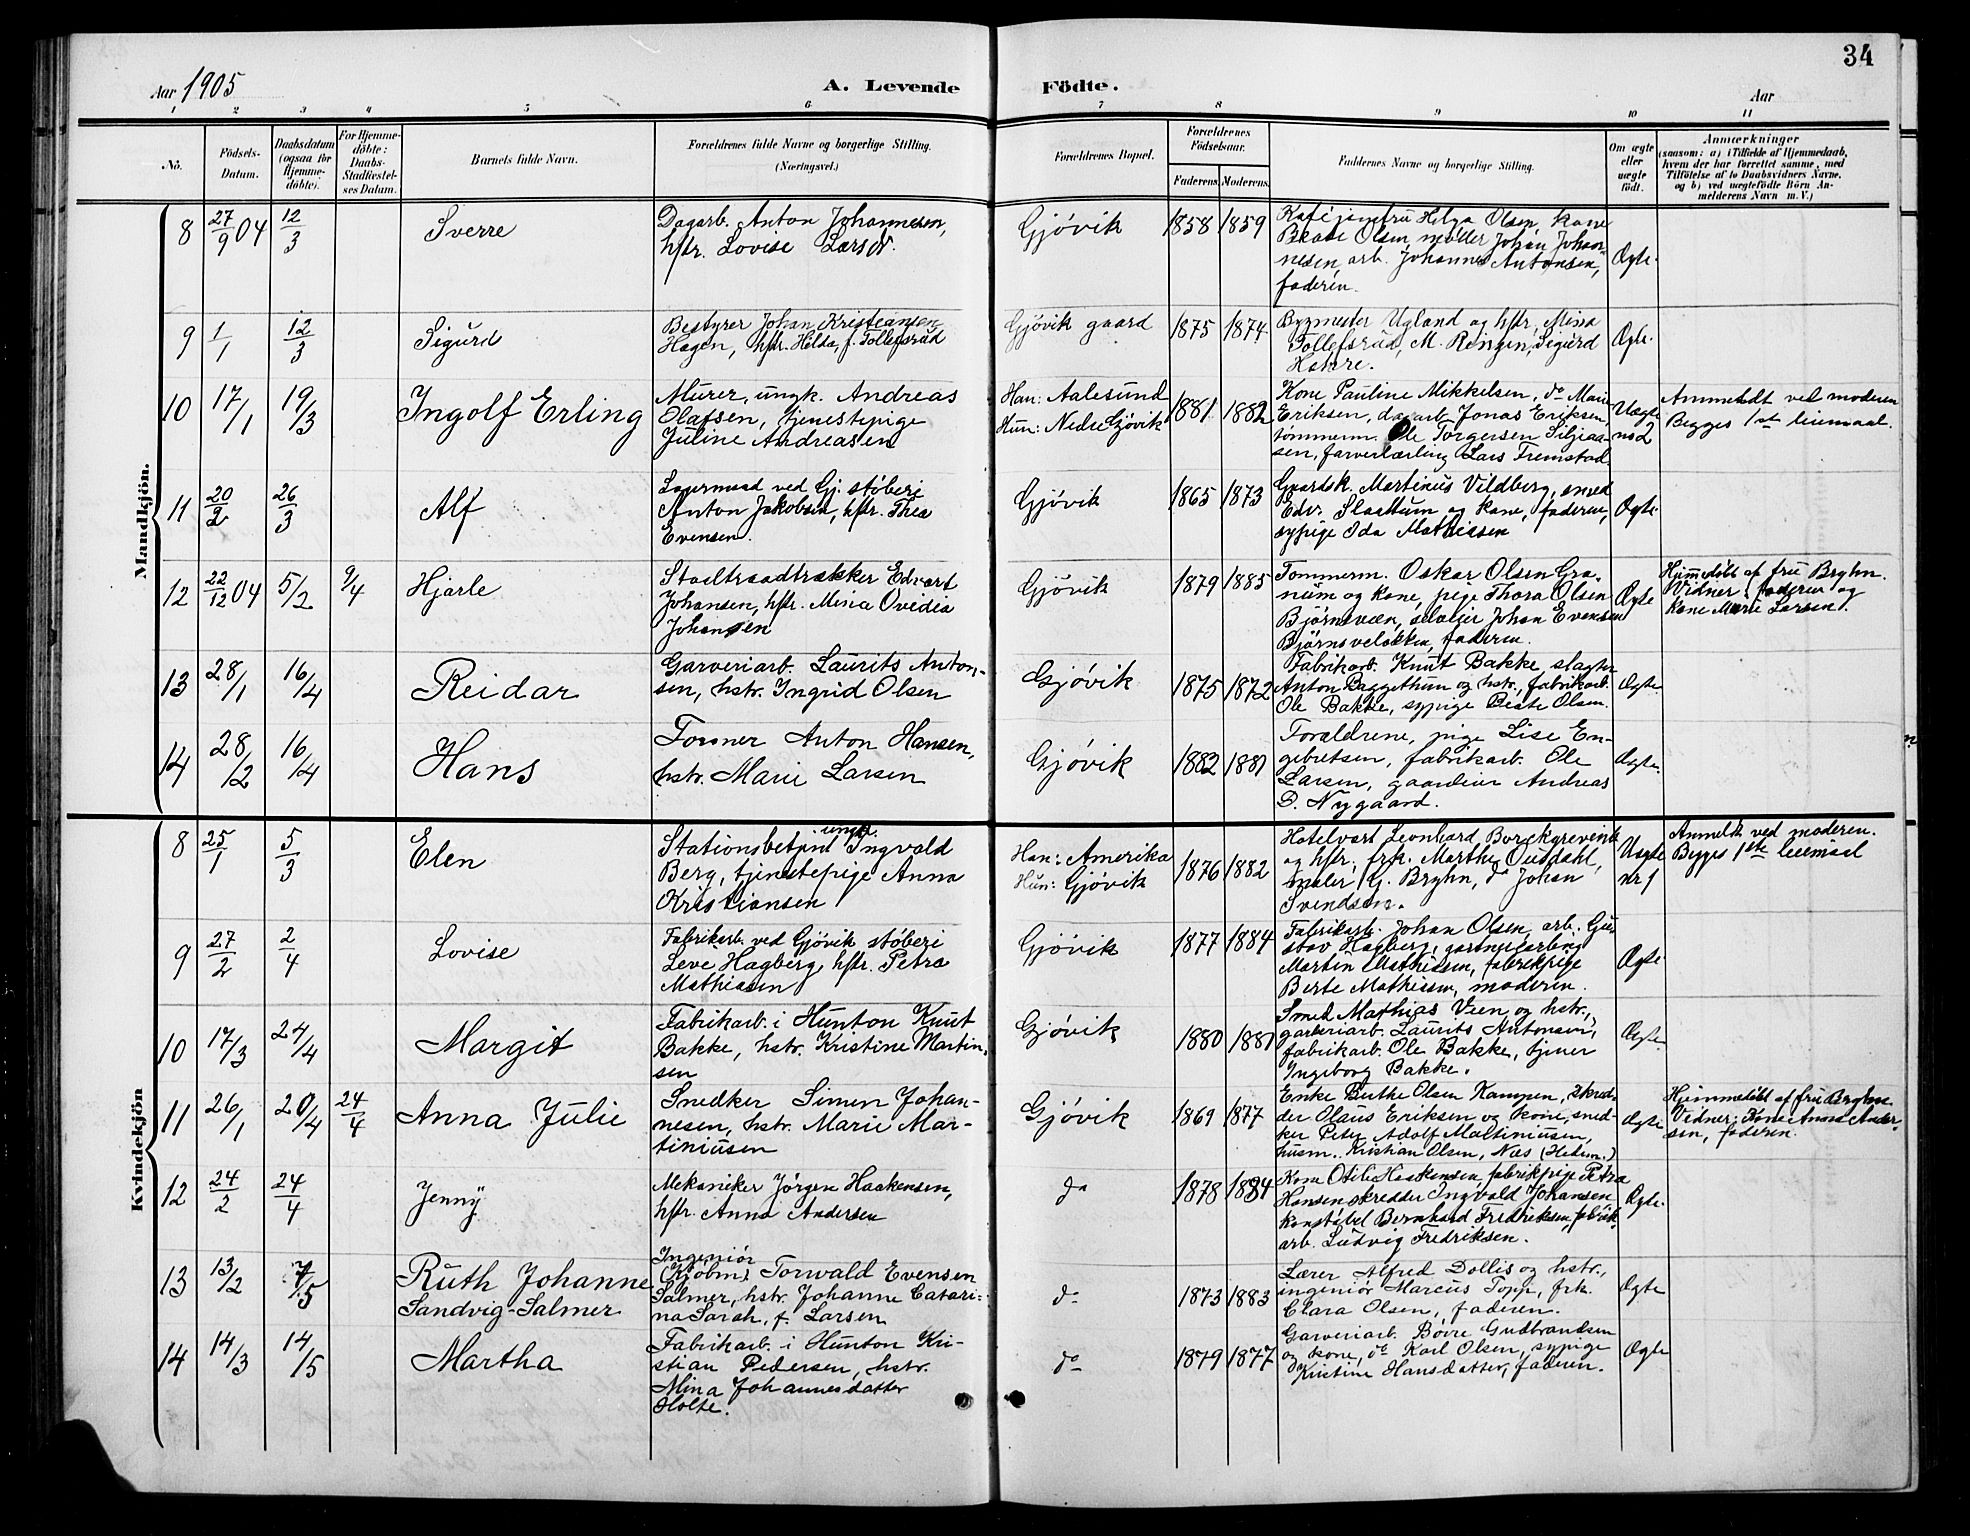 34
Aar 1905
A. Levende
Födte.
Aar
1 2 3 4 5 6 7 8 9 10 11
No.
Födsels-
Datum.
Daabsdatum
(ogsaa for
Hjemme-
döbte).
For Hjemme-
döbte:
Daabs-
Stadfæstel-
ses Datum.
Barnets fulde Navn.
Forældrenes fulde Navne og borgerlige Stilling.
(Næringsvei.)
Forældrenes Bopæl.
Forældrenes
Födselsaar.
Faderens. Moderens.
Faddernes Navne og borgerlige Stilling.
Om ægte
eller
uægte
födt.
Anmærkninger
(saasom: a) i Tilfælde af Hjemmedaab,
hvem der har forrettet samme, med
Tilföielse af to Daabsvidners Navne,
og b) ved uægtefödte Börn An-
melderens Navn m. V.)
Mandkjön.
8 27/9 04 12/3 Sverre
Dagarb. Anton Johannesen,
hstr. Lovise Larsdr.
Gjövik 1858 1859
Kaféjomfru Helga Olsen, kone
Beate Olsen, møller Johan Johan-
nesen, arb. Johannes Antonsen,
faderen.
Ægte.
9 1/1 12/3 Sigurd
Bestyrer Johan Kristiansen
Hagen, hstr. Hilda, f. Tollefsrud
Gjövik gaard 1875 1874
Bygmester Ugland og hstr, Mina
Tollefsrud, M. Ringen, Sigurd
Ægte.
10 17/1 19/3 Ingolf Erling
Murer, ungk. Andreas
Olafsen, tjenestepige
Juline Andreasen
Han: Aalesund
Hun: Nedre Gjövik
1881 1882
Kone Pauline Mikkelsen, do Marie
Eriksen, dagarb. Jonas Eriksen,
tömmerm. Ole Torgersen Siljaa-
sen, farverlærling Lars Fremstad.
Uægte
no 2
Anmeldt ved moderen
Begges 1ste leiemaal.
11 20/2 26/3 Alf
Lagermand ved Gj. støberi
Anton Jakobsen, hstr. Thea
Evensen.
Gjövik 1865 1873
Gaardsk. Martinus Vildberg, smed
Edv. Slaattum og kone, faderen,
sypige Ida Mathiesen
Ægte.
12 22/12 04 5/2 9/4 Hjarle
Staaltraadtrækker Edvart
Johansen, hstr. Mina Ovidia
Johansen
Gjövik 1879 1885
Tommerm. Oskar Olsen Gra-
num og kone, pige Thora Olsen
Björnsveen, Johan Evensen
Björnsveløkken, faderen.
Ægte
Hjemmedöbt af fru Bryhn.
Vidner: faderen og
kone Marie Larsen.
13 28/1 16/4 Reidar
Garveriarb. Laurits Anton-
sen, hstr. Ingrid Olsen
Gjövik 1875 1872
Fabrikarb. Knut Bakke, slagter
Anton Baggethun og hstr., fabrikarb.
Ole Bakke, sypige Berte Olsen.
Ægte.
14 28/2 16/4 Hans
Former Anton Hansen,
hstr. Marie Larsen
Gjövik 1882 1881
Forældrene, pige Lise En-
gebretsen, fabrikarb. Ole
Larsen, gaardeier Andreas
D. Nygaard.
Ægte.
Kvindekjön
8 25/1 5/3 Elen
ungk.
Stationsbetjent Ingvald
Berg, tjenestepige Anna
Kristiansen
Han: Amerika
Hun: Gjövik
1876 1882
Hotelvært Leonhard Borchgrevink
og hstr, frk. Marthe Ousdahl,
maler G. Bryhn, do Johan
Svendsen.
Uægte
nr 1
Anmeldt ved moderen.
Begges 1ste leiemaal
9 27/2 2/4 Lovise
Fabrikarb. ved Gjövik støberi
Leve Hagberg, hstr. Petra
Mathiasen
Gjövik 1877 1884
Fabrikarb. Johan Olsen, arb. Gu-
stav Hagberg, gartnerlærling
Martin Mathissen, fabrikpige
Berte Mathissen, moderen.
Ægte
10 17/3 24/4 Margit
Fabrikarb. i Hunton Knut
Bakke, hstr. Kristine Martin-
sen
Gjövik 1880 1881
Smed Mathias Veen og hstr.,
garveriarb. Laurits Antonsen,
fabrikarb. Ole Bakke, tjener
Ingeborg Bakke.
Ægte.
11 26/1 20/4 24/4 Anna Julie
Snedker Simen Johan-
nesen, hstr. Marie Mar-
tiniusen
Gjövik 1869 1877
Enke Berthe Olsen Kampen, skred-
der Olaus Eriksen og kone, sned-
ker Peter Adolf Maltiniusen,
husm. Kristian Olsen, Næs (Hedem.)
Ægte
Hjemmedöbt af fru Bryhn
Vidner: Kone Anna Ander-
sen, faderen.
12 24/2 24/4 Jenny
Mekaniker Jörgen Haakensen,
hstr. Anna Andersen
do 1878 1884
Kone Otilie Haakensen, fabrikpige Petra
Hansen, skredder Ingvald Johansen
konstabel Bernhard Fredriksen, fabrik-
arb. Ludvig Fredriksen.
Ægte.
13 13/2 7/5 Ruth Johanne
Sandvig-Salmer
Ingeniör
(Kjöbm.) Torwald Evensen
Salmer, hstr. Johanne Catari-
na Sarah, f. Larsen
do 1873 1883
Lærer Alfred Dollis og hstr.,
ingeniör Marcus Topp, frk.
Clara Olsen, faderen.
Ægte
14 14/3 14/5 Martha
Fabrikarb. i Hunton Kri-
stian Pedersen, hstr.
Mina Johannesdatter
Holte.
do 1879 1877
Garveriarb. Börre Gudbrandsen
og kone, do Karl Olsen, sypige
Kristine Hansdatter, faderen.
Ægte